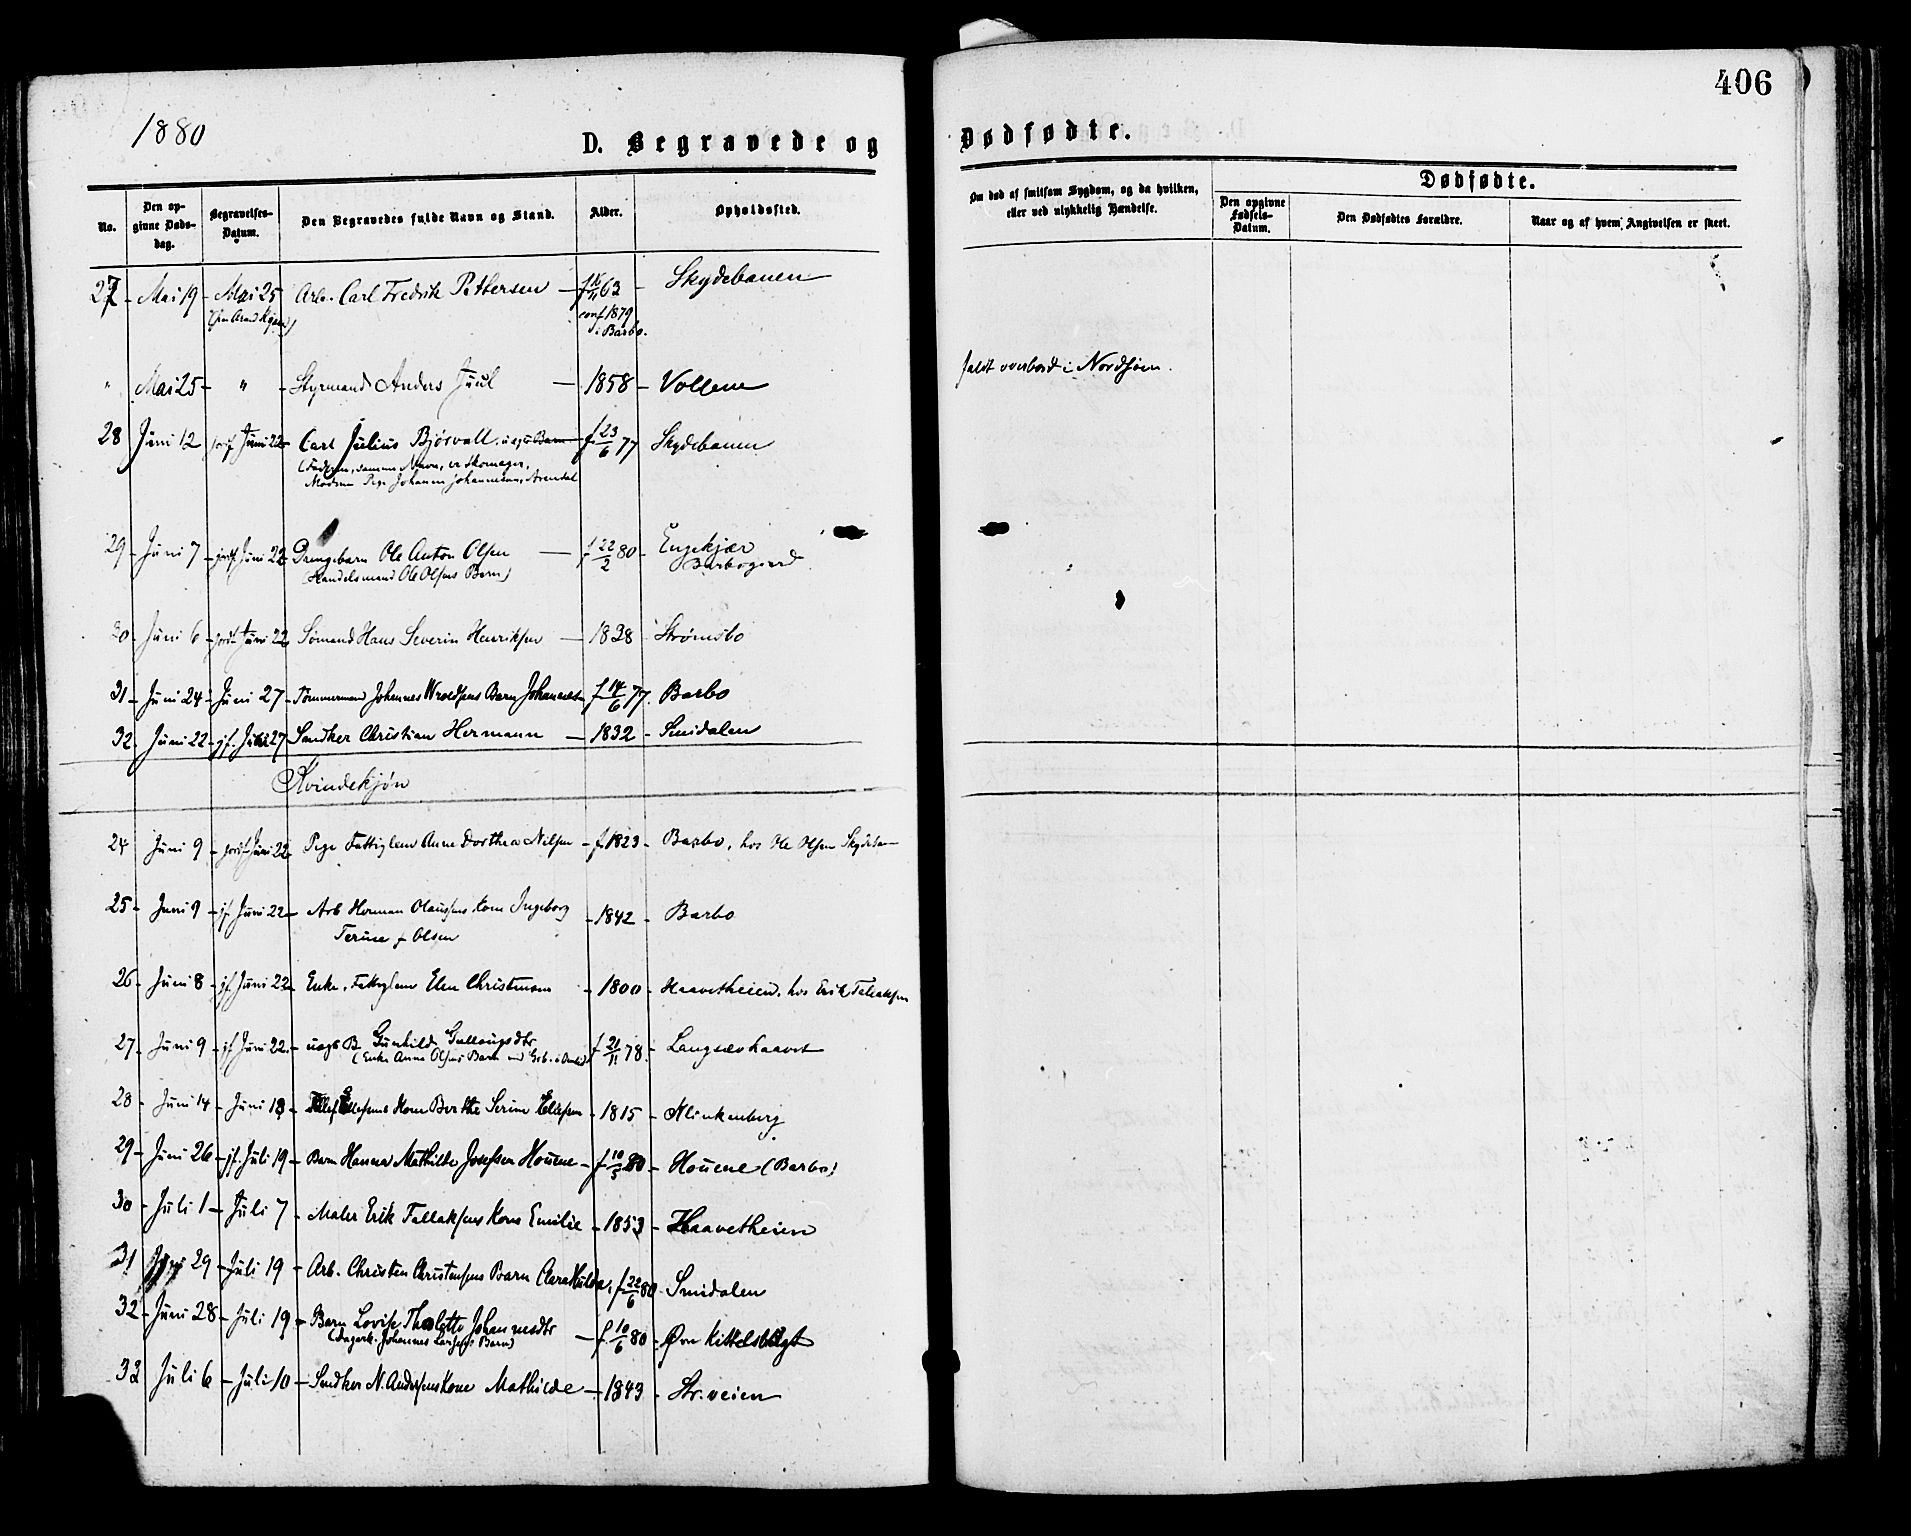 406
1880
D. Begravede og Dødfødte.
No. Den opgivne Dødsdag. Begravelses-Datum. Den Begravedes fulde Navn og Stand. Alder. Opholdssted. Om død af smitsom Sygdom, og da hvilken, eller ved ulykkelig Hændelse. Dødfødte. Den opgivne Fødsels-Datum. Den Dødfødtes Forældre. Naar og af hvem Angivelsen er skeet.
27 Mai 19 Mai 25 Arb. Carl Fredrik Pettersen 63 Skydebanen
conf 1879
i Barbo.
" Mai 25 " Styrmand Anders Juul 1858 Vollene faldt overbord i Nordsjøen.
28 Juni 12 Juni 22 Carl Julius Bjørvall. uægte Barn f 23/6 77 Skydebanen
(Faderen, samme Navn, er Skomager,
Moderen Pige Johanne Johannesen, Arendal
29 Juni 7 Juni 22 Drengebarn Ole Anton Olsen f 22/2 80 Engekjær
(Handelsmand Ole Olsens Barn) Barbogaard
30 Juni 6 Juni 22 Sømand Hans Severin Henriksen 1838 Strømsbo
31 Juni 24 Juni 27 Tømmermand Johannes Wroldsens Barn Johannes f 14/6 77. Barbo
32 Juni 22 jf. Juni 27 Snedker Christian Hermann 1832 Smidalen
Kvindekjøn
24 Juni 9 Juni 22 Pige Fattiglem Anne Dorthea Nilsen f 1823 Barbo, hos Ole Olsen
25 Juni 9 jf Juni 22 Arb Herman Olaussens Kone Ingeborg 1842 Barbo
Terine f Olsen
26 Juni 8 jf Juni 22 Enke, Fattiglem Elen Christensen 1800 Haavetheien, hos Erik Tallaksen
27 Juni 9 jf Juni 22 uægte B Gunhild f 21/11 78 Langsævhaavet
(Enke Anne Olsens Barn
28 Juni 14 Juni 18 Kone Berthe Serine 1815 Klinkenberg
29 Juni 26 jf. Juli 19 Barn Hanna Mathilde Josefsen Houene f 10/5 80 Houene (Barbo)
30 Juli 1 Juli 7 Maler Erik Tallaksens Kone Emilie 1853 Haavetheien
31 Juni 29 Juli 19 Arb. Christen Christensens Barn Clara Hulda, f 22/6 80 Smidalen
32 Juni 28 Juli 19 Barn Lovise Johannesdtr f. 10/6 80 Øvre Kittelsbugt
(Dagarb. Johannes Larsens Barn)
33 Juli 6 Juli 10 Snedker N. Andersens Kone Mathilde 1843 Str.veien